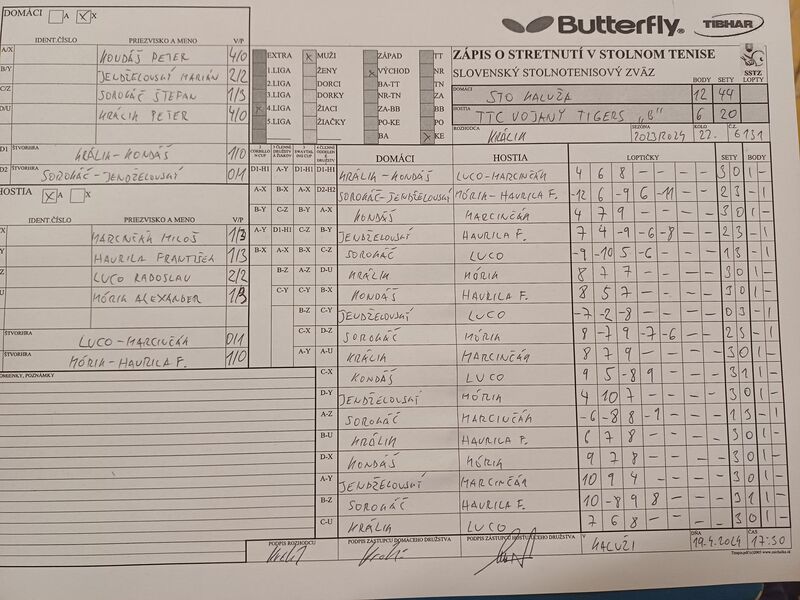 DOMÁCI A X X
Butterfly® TIBHAR
IDENT.ČÍSLO PRIEZVISKO A MENO V/P
A/X KONDÁŠ PETER 4/0
B/Y JENDŽELOVSKÝ MARIÁN 2/2
C/Z SOROKÁČ ŠTEFAN 1/3
D/U KRÁLIK PETER 4/0
D1 ŠTVORHRA KRÁLIK-KONDÁŠ 1/0
D2 ŠTVORHRA SOROKÁČ-JENDŽELOVSKÝ 0/1
HOSTIA X A X
IDENT.ČÍSLO PRIEZVISKO A MENO V/P
MARCINČÁK MILOŠ 1/3
HAURILA FRANTIŠEK 1/3
LUCO RADOSLAV 2/2
MÓRIK ALEXANDER
ŠTVORHRA LUCO-MARCINČÁK 0/1
ŠTVORHRA MÓRIK-HAURILA F. 1/0
POZNÁMKY
EXTRA X MUŽI ZÁPAD TT
1.LIGA ŽENY X VÝCHOD NR
2.LIGA DORCI BA-TT TN
3.LIGA DORKY NR-TN ZA
X 4.LIGA ŽIACI ZA-BB BB
5.LIGA ŽIAČKY PO-KE PO
BA X KE
ZÁPIS O STRETNUTÍ V STOLNOM TENISE
SLOVENSKÝ STOLNOTENISOVÝ ZVÄZ
SSTZ
BODY SETY LOPTY
DOMÁCI STO KALUŽA 12 44
HOSTIA TTC VOJANY TIGERS „B" 6 20
ROZHODCA KRÁLIK SEZÓNA 2023/2024 KOLO 22. Č.Z. 6131
DOMÁCI HOSTIA LOPTIČKY SETY BODY
D1-H1 A-Y D1-H1 D1-H1 KRÁLIK-KONDÁŠ LUCO-MARCINČÁK 4 6 8 - - - - 3 0 1 -
A-X B-X A-X D2-H2 SOROKÁČ-JENDŽELOVSKÝ MÓRIK-HAURILA F. -12 6 -9 6 -11 - - 2 3 - 1
B-Y C-Z B-Y A-X KONDÁŠ MARCINČÁK 4 7 9 - - - - 3 0 1 -
A-Y D1-H1 C-Z B-Y JENDŽELOVSKÝ HAURILA F. 7 4 -9 -6 -8 - - 2 3 - 1
B-X A-X B-X C-Z SOROKÁČ LUCO -9 -10 5 -6 - - - 1 3 - 1
B-Z A-Z D-U KRÁLIK MÓRIK 8 7 7 - - - - 3 0 1 -
C-Y C-Y B-X KONDÁŠ HAURILA F. 8 5 7 - - - - 3 0 1 -
B-Z C-Y JENDŽELOVSKÝ LUCO -7 -2 -8 - - - - 0 3 - 1
C-X D-Z SOROKÁČ MÓRIK 8 -7 9 -7 -6 - - 2 3 - 1
A-Y A-U KRÁLIK MARCINČÁK 8 7 9 - - - - 3 0 1 -
C-X KONDÁŠ LUCO 9 5 -8 9 - - - 3 1 1 -
D-Y JENDŽELOVSKÝ MÓRIK 4 10 7 - - - - 3 0 1 -
A-Z SOROKÁČ MARCINČÁK -6 -8 8 -1 - - - 1 3 - 1
B-U KRÁLIK HAURILA F. 6 7 8 - - - - 3 0 1 -
D-X KONDÁŠ MÓRIK 9 7 8 - - - - 3 0 1 -
A-Y JENDŽELOVSKÝ MARCINČÁK 10 9 4 - - - - 3 0 1 -
B-Z SOROKÁČ HAURILA F. 10 -8 9 8 - - - 3 1 1 -
C-U KRÁLIK LUCO 7 6 8 - - - - 3 0 1 -
PODPIS ROZHODCU PODPIS ZÁSTUPCU DOMÁCEHO DRUŽSTVA PODPIS ZÁSTUPCU HOSŤUJÚCEHO DRUŽSTVA V KALUŽI DŇA 19.4.2024 ČAS 17:30